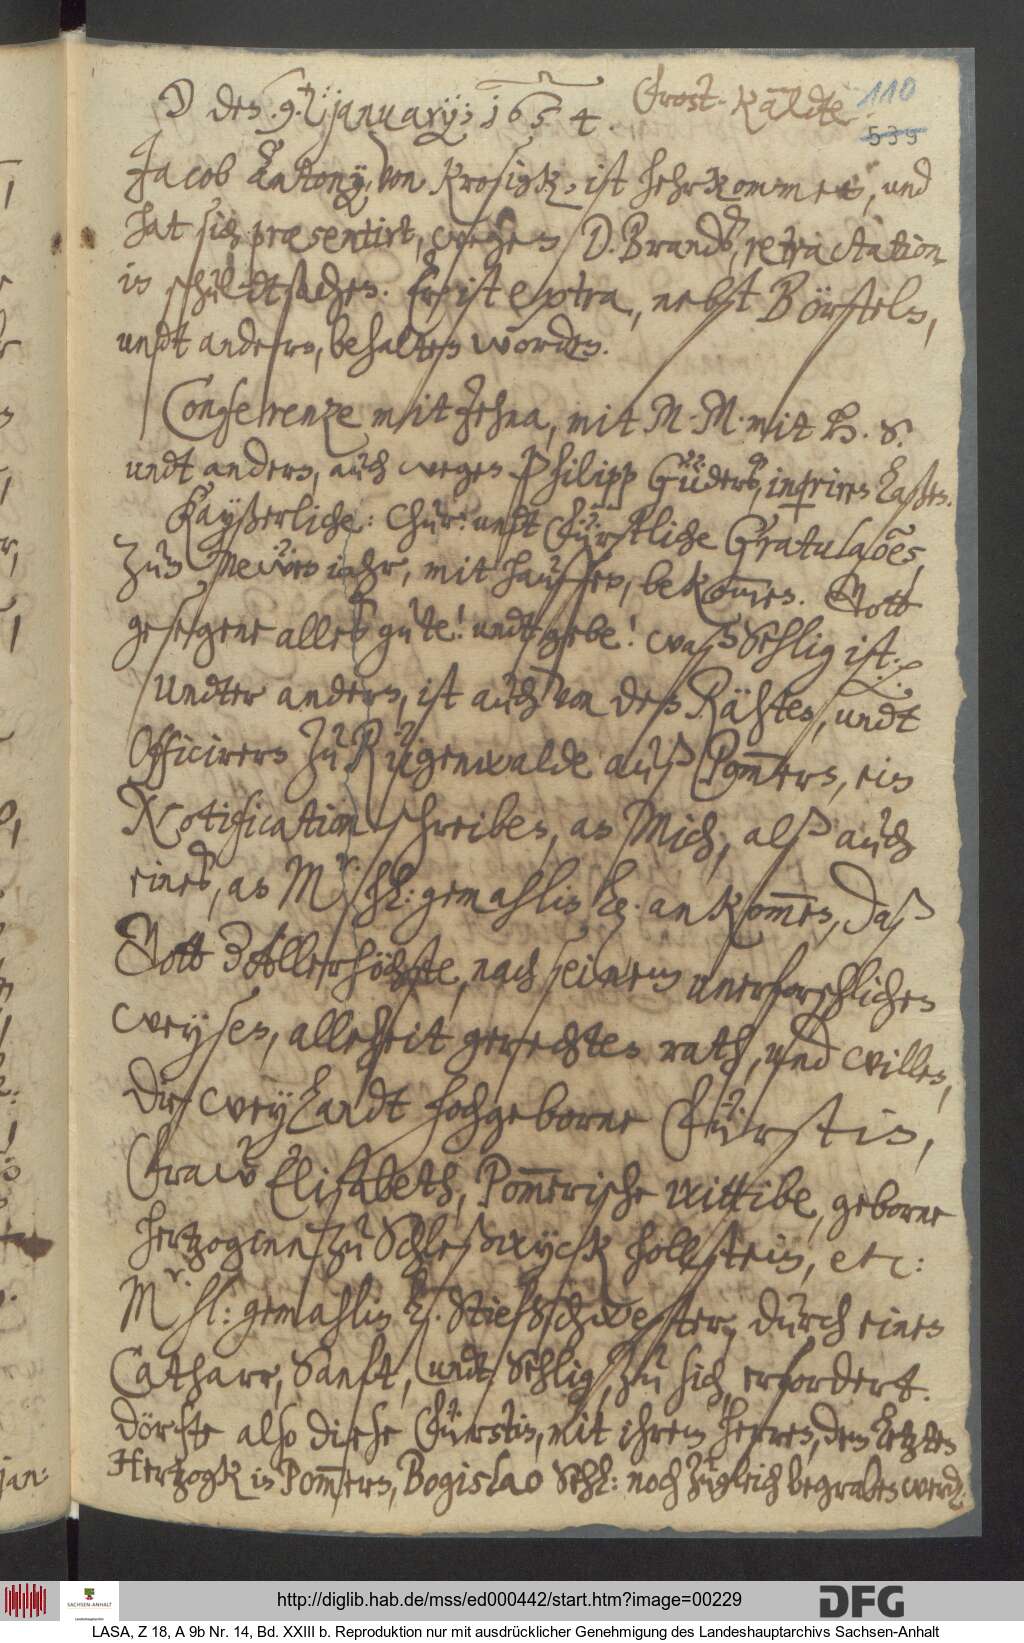 ☽ den. 9. Januarÿ; 1654. Frost. Kälte.
110
539
Jacob Antonÿ, von Krosigk, ist hehrkommen, und
hat sich præsentirt, wegen D. Brandts, retractation
in schuldtsachen. Er ist extra, nebst Börstels,
undt anders, behalten worden.
Conferenze mit Jehna, mit M. M. mit H. S.
undt anders, auch wegen Philipp Güders,
Kayßerliche: Chur: undt Fürstliche Gratulaões,
Zum Newen iahr, mit hauffen, bekom̄en. Gott
gesegene alles gute! undt gebe! waß Sehlig ist.
Undter anders, ist auch von den Rähten, undt
Officirern Zu Rügenwalde auß Pom̄ern, ein
Notification schreiben, an Mich, alß auch
eines, an Mr. hl: gemahlin Ld. ankom̄en, daß
Gott der Allerhöchste, nach seinem unerforschlichen
weysen, allezeit gerechten rath, und willen,
Die weylandt hochgeborne Fürstin,
Fraw Elisabeth, Pom̄erische wittibe, geborne
Hertzoginn zu Schleßwyck hollstein, etc:
Mr. hl: gemahlin Ld. Stiefschwester, durch einen
Catharr, Sanft, undt Sehlig, zu sich, erfordert.
Dörfte also diese Fürstin, mit ihrem herren, dem letzten
Hertzogk in Pom̄ern, Bogislao Sehl: noch zugleich begraben werd
jan:
http://diglib.hab.de/mss/ed000442/start.htm?image=00229
SACHSEN-ANHALT
DFG
LASA, Z 18, A 9b Nr. 14, Bd. XXIII b. Reproduktion nur mit ausdrücklicher Genehmigung des Landeshauptarchivs Sachsen-Anhalt